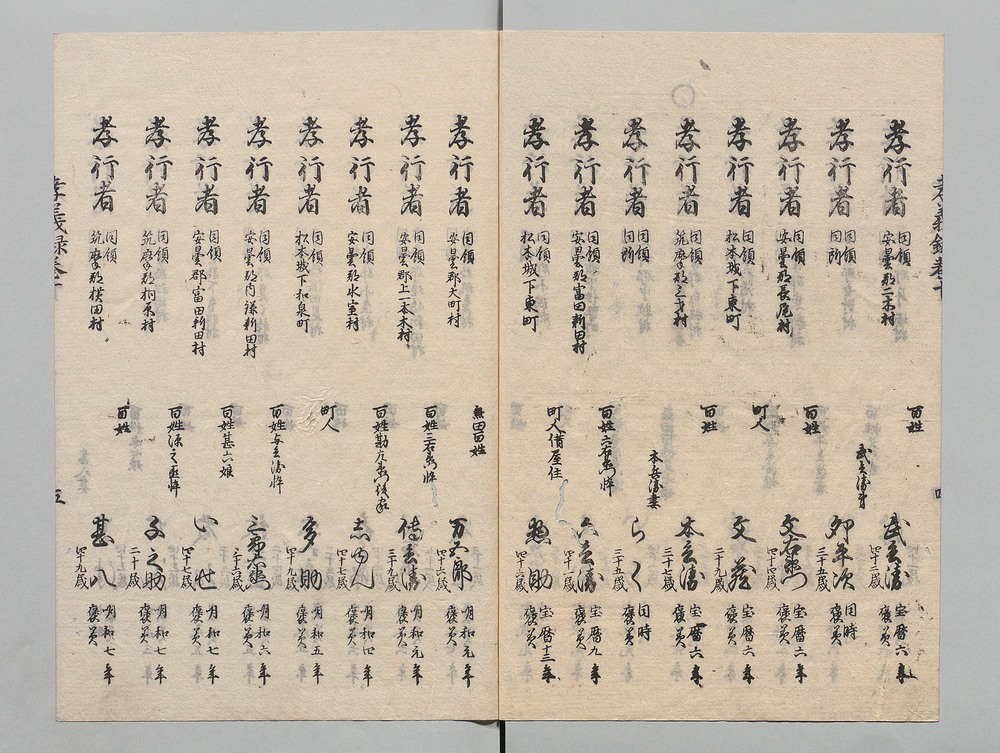 孝行者 同領 安曇郡二木村 百姓 武兵衛 四十三歳 宝暦六年 褒美
孝行者 同領 同所 武兵衛弟 卯平次 三十五歳 同時 褒美
孝行者 同領 安曇郡長尾村 百姓 文右衛門 四十四歳 宝暦六年 褒美
孝行者 同領 松本城下東町 町人 文蔵 二十九歳 宝暦六年 褒美
孝行者 同領 筑摩郡 百姓 本兵衛 三十七歳 宝暦六年 褒美
孝行者 同領 同所 本兵衛妻 らく 三十五歳 同時 褒美
孝行者 同領 安曇郡富田新田村 百姓六右衛門忰 六兵衛 四十一歳 宝暦九年 褒美
孝行者 同領 松本城下東町 町人借屋住 惣助 四十六歳 宝暦十三年 褒美
孝行者 同領 安曇郡大町村 無田百姓 万五郎 四十六歳 明和元年 褒美
孝行者 同領 安曇郡上一本木村 百姓二右衛門忰 傳兵衛 三十九歳 明和元年 褒美
孝行者 同領 安曇郡氷室村 百姓勘左衛門後家 四十七歳 明和四年 褒美
孝行者 同領 松本城下和泉町 町人 多助 四十九歳 明和五年 褒美
孝行者 同領 安曇郡内鎌新田村 百姓与兵衛忰 三郎右衛門 三十六歳 明和六年 褒美
孝行者 同領 安曇郡富田新田村 百姓甚六娘 いせ 四十七歳 明和七年 褒美
孝行者 同領 筑摩郡桐原村 百姓源之丞忰 文之助 二十歳 明和七年 褒美
孝行者 同領 筑摩郡横田村 百姓 甚八 四十九歳 明和七年 褒美
孝義録巻十
四
孝義録巻十
五